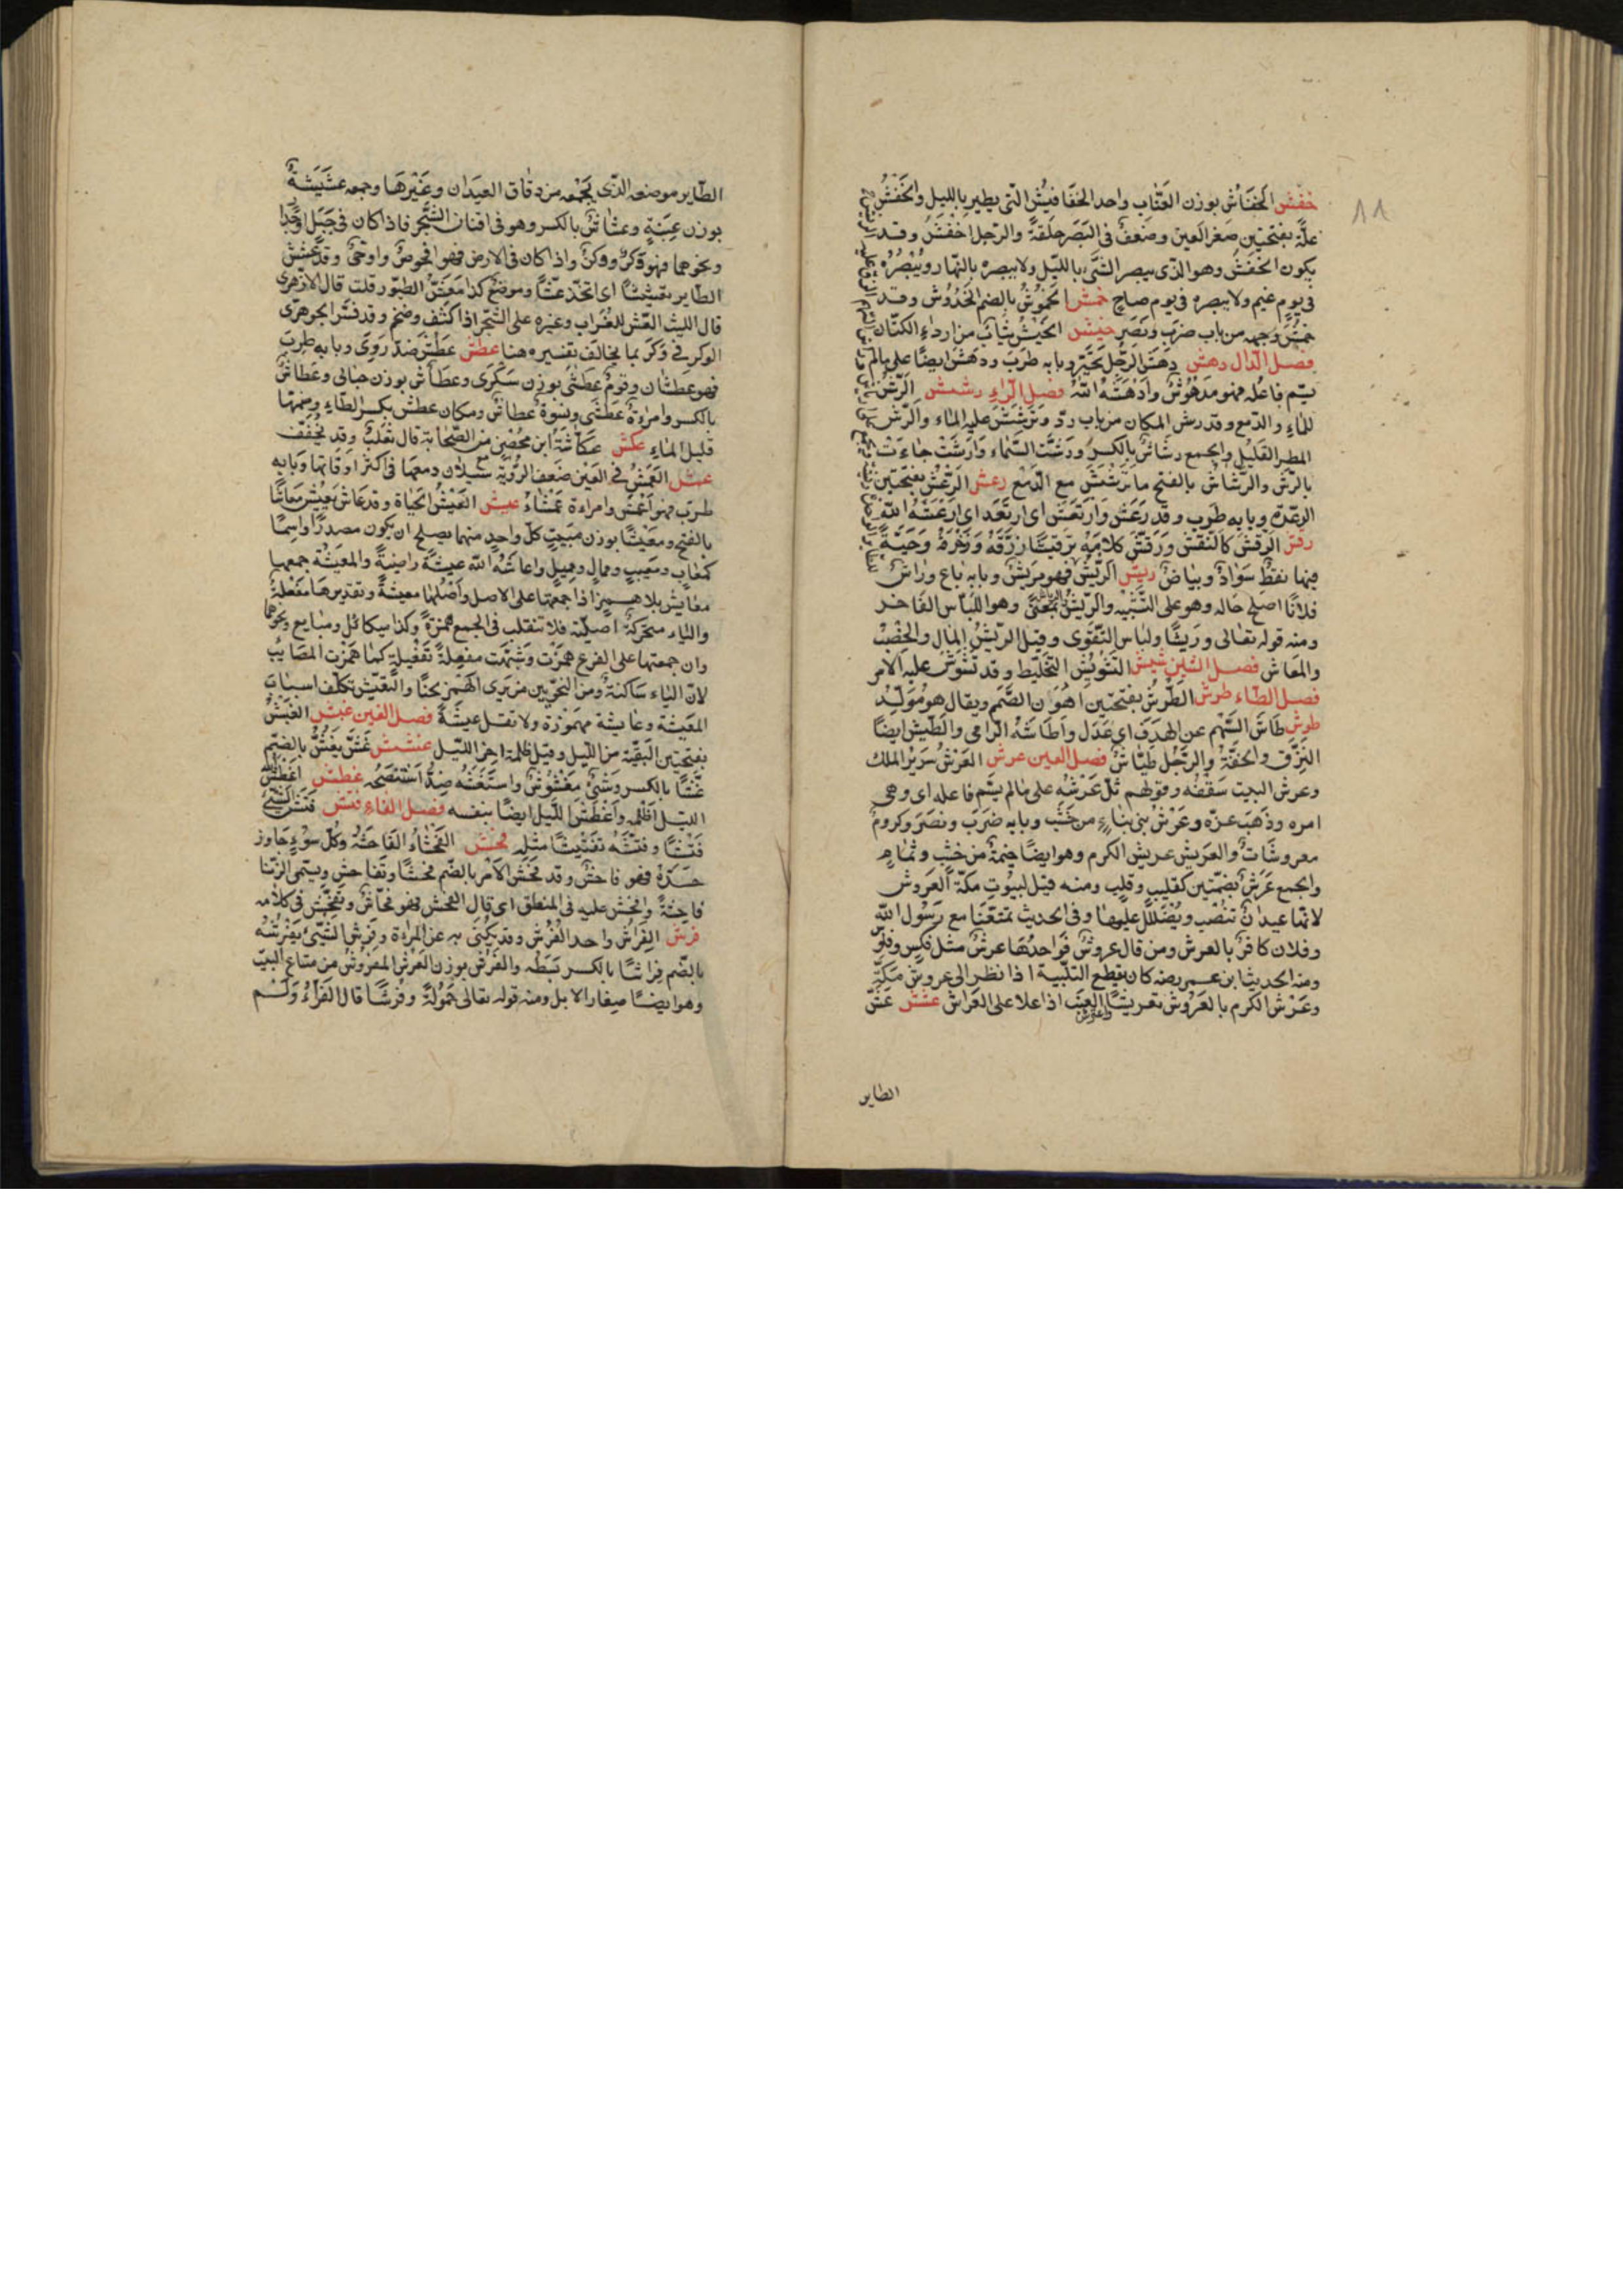 خفش الخفاش بوزن العناب واحد الخفافيش التي يطير بالليل والخفش
علة بفتحتين صغر العين وضعف في البصر خلقة والرجل اخفش وقد
يكون الخفش وهو الذي يبصر الشئ بالليل ولا يبصره بالنهار ويبصره
في يوم غيم ولا يبصره في يوم صاح خمش الخموش بالضم الخدوش وقد
خمش وجهه من باب ضرب ونصر خيش الخيش ثياب من ارداء الكتان
فصل الدال دهش دهش الرجل تحير وبابه طرب ودهش ايضا على ما لم
يسم فاعله فهو مدهوش وادهشه الله فصل الراء رشش الرش
للماء والدمع وقد رش المكان من باب رد وترشش عليه الماء والرش
المطر القليل والجمع رشاش بالكسر ورشت السماء وارشت جاءت
بالرش والرشاش بالفتح ما ترشش مع الدمع رعش الرعش بفتحتين
الرعدة وبابه طرب وقد رعش وارتعش اى ارتعد اى ارعشه الله
رقش الرقش كالنقش ورقش كلامه ترقيشا زوقه وزخرفه وحية
فيها نقط سواد وبياض ريش الريش فهو مريش وبابه باع وراش
فلانا اصلح حاله وهو على التشبيه والريش بمعنى وهو اللباس الفاخر
ومنه قوله تعالى وريشا ولباس التقوى وقيل الريش المال والخصب
والمعاش فصل الشين شيش التشويش التخليط وقد تشوش عليه الامر
فصل الطاء طرش الطرش بفتحتين اهون الصمم ويقال هو مولد
طوش طاش السهم عن الهدف اى عدل واطاشه الرامى والطيش ايضا
النزق والخفة والرجل طياش فصل العين عرش العرش سرير الملك
وعرش البيت سقفه وقولهم ثل عرشه على ما لم يسم فاعله اى وهى
امره وذهب عزه وعرش بنى بناء من خشب وبابه ضرب ونصر وكروم
معروشات والعريش عريش الكرم وهو ايضا خيمة من خشب وثمام
والجمع عرش بضمتين كقليب وقلب ومنه قيل لبيوت مكة العروش
لانها عيدان تنصب ويظلل عليها وفي الحديث تمتعنا مع رسول الله
وفلان كافر بالعرش ومن قال عروش فواحدها عرش مثل فلس وفلوس
ومنه الحديث ابن عمر رضه كان يقطع التلبية اذا نظر الى عروش مكة
وعرش الكرم بالعروش تعريشا واعترش العنب اذا علا على العراش عشش عش
الطاير
الطاير موضعه الذي يجمعه من دقاق العيدان وغيرها وجمعه عششة
بوزن عنبة وعشاش بالكسر وهو في افنان الشجر فاذا كان في جبل او جدار
ونحوهما فهو وكر ووكن واذا كان في الارض فهو افحوص وادحى وقد عشش
الطاير تعشيشا اى اتخذ عشا وموضع كذا معشش الطيور قلت قال الازهرى
قال الليث العش للغراب وغيره على الشجر اذا كثف وضخم وقد فسر الجوهرى
الوكر في وكر بما يخالف تفسيره هنا عطش عطش ضد روى وبابه طرب
فهو عطشان وقوم عطشى بوزن سكرى وعطاش بوزن حبالى وعطاش
بالكسر وامراة عطشى ونسوة عطاش ومكان عطش بكسر الطاء وضمها
قليل الماء عكش عكاشة ابن محصن من الصحابة قال ثعلب وقد يخفف
عمش العمش في العين ضعف الروية سيلان دمعها في اكثر اوقاتها وبابه
طرب فهو اعمش وامراءة عمشاء عيش العيش الحياة وقد عاش يعيش معاشا
بالفتح ومعيشا بوزن مبيت كل واحد منهما يصلح ان يكون مصدرا واسما
كمعاب ومعيب وممال ومميل واعاشه الله عيشة راضية والمعيشة جمعها
معايش بلا همز اذا جمعتها على الاصل واصلها معيشة وتقديرها مفعلة
والياء متحركة اصلية فلا تنقلب في الجمع همزة وكذا مبايع ونحوها
وان جمعتها على الفرع همزت وشبهت مفعلة بفعيلة كما همزت المصايب
لان الياء ساكنة ومن النحويين من يرى الهمز لحنا والتعيش تكلف اسباب
المعيشة وعايشة مهموزة ولا تقل عيشة فصل الغين غبش الغبش
بفتحتين البقية من الليل وقيل ظلمة اخر الليل غشش غش يغش بالضم
غشا بالكسر وشئ مغشوش واستغشه ضد استنصحه غطش اغطش الله
الليل اظلمه واغطش الليل ايضا بنفسه فصل الفاء فتش فتش الشئ
فتشا وفتشه تفتيشا مثله فحش الفحشاء الفاحشة وكل سوء جاوز
حده فهو فاحش وقد فحش الامر بالضم فحشا وتفاحش ويسمى الزنا
فاحشة وافحش عليه في المنطق اى قال الفحش فهو فحاش وتفحش في كلامه
فرش الفراش واحد الفرش وقد يكنى به عن المراءة وفرش الشئ يفرشه
بالضم فراشا بالكسر بسطه والفرش بوزن العرش المفروش من متاع البيت
وهو ايضا صغار الابل ومنه قوله تعالى حمولة وفرشا قال الفراء ولم